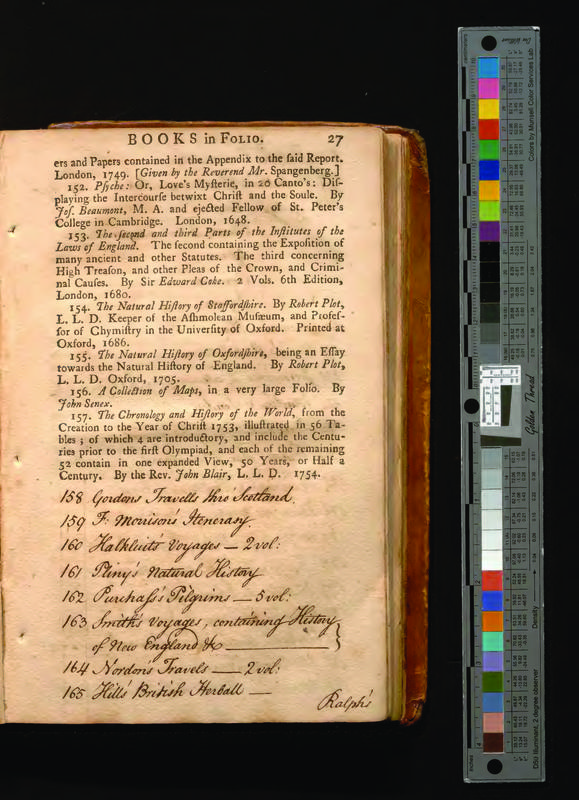 BOOKS in FOLIO. 27
ers and Papers contained in the Appendix to the ſaid Report.
London, 1749. [Given by the Reverend Mr. Spangenberg.]
152. Pſyche: Or, Love's Myſterie, in 20 Canto's: Diſ-
playing the Intercourſe betwixt Chriſt and the Soule. By
Joſ. Beaumont, M. A. and ejected Fellow of St. Peter's
College in Cambridge. London, 1648.
153. The ſecond and third Parts of the Inſtitutes of the
Laws of England. The ſecond containing the Expoſition of
many ancient and other Statutes. The third concerning
High Treaſon, and other Pleas of the Crown, and Crimi-
nal Cauſes. By Sir Edward Coke. 2 Vols. 6th Edition,
London, 1680.
154. The Natural Hiſtory of Staffordſhire. By Robert Plot,
L. L. D. Keeper of the Aſhmolean Muſæum, and Profeſ-
ſor of Chymiſtry in the Univerſity of Oxford. Printed at
Oxford, 1686.
155. The Natural Hiſtory of Oxfordſhire, being an Eſſay
towards the Natural Hiſtory of England. By Robert Plot,
L. L. D. Oxford, 1705.
156. A Collection of Maps, in a very large Folio. By
John Senex.
157. The Chronology and Hiſtory of the World, from the
Creation to the Year of Chriſt 1753, illuſtrated in 56 Ta-
bles; of which 4 are introductory, and include the Centu-
ries prior to the firſt Olympiad, and each of the remaining
52 contain in one expanded View, 50 Years, or Half a
Century. By the Rev. John Blair, L. L. D. 1754.
158 Gordons Travells thro Scotland.
159 F: Morrison's Itenerary.
160 Halkluit's Voyages — 2 vol:
161 Pliny's Natural History
162 Purchass's Pilgrims — 5 vol:
163 Smith's Voyages, containing History
of New England &c
164 Nordon's Travels — 2 vol:
165 Hill's British Herball —
Ralph's
Colors by Munsell Color Services Lab
Golden Thread
Density
D50 Illuminant, 2 degree observer
inches